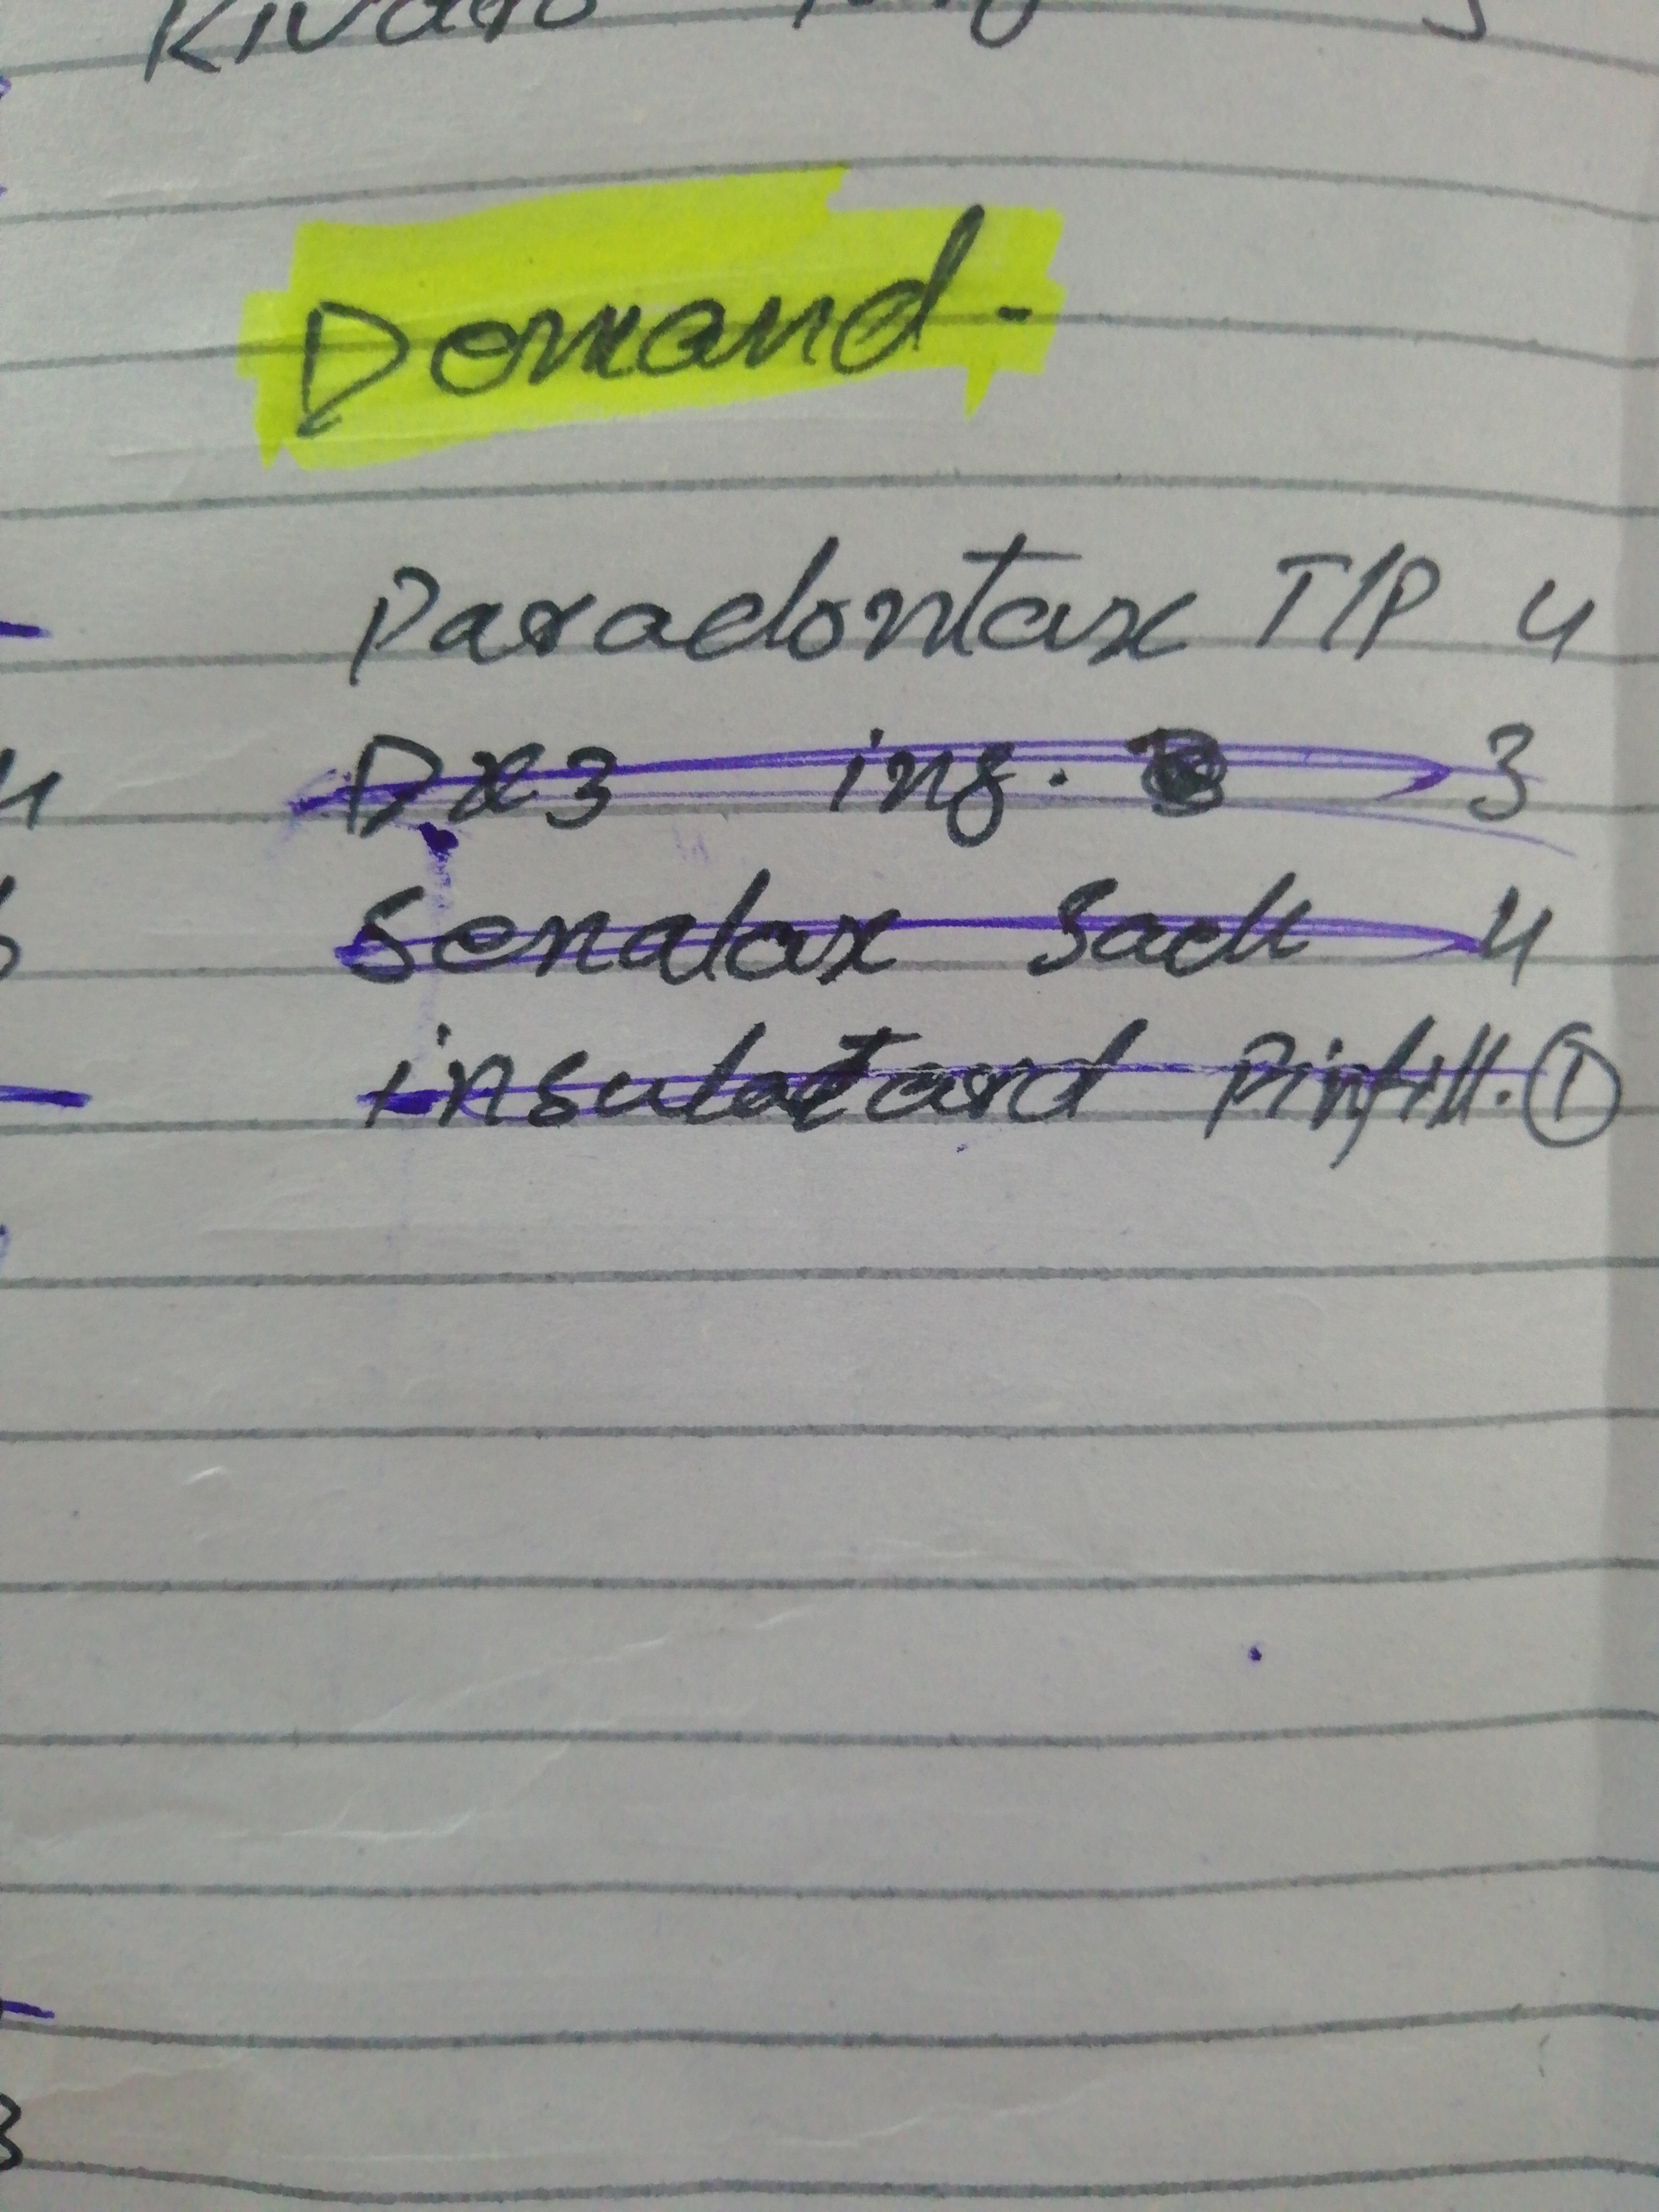 Demand -
Paradontax T/P 4
Dx3 ing. 3
Senalax Sach 4
insulatard Pinfill. 1
4
3